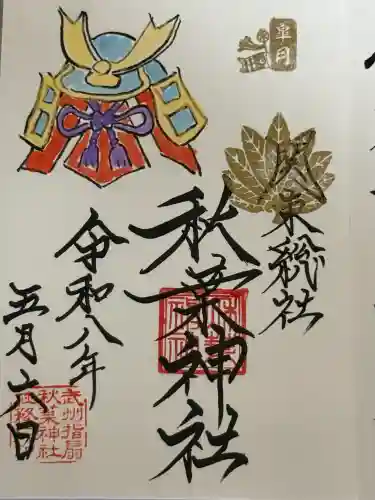 皐月
関東総社
秋葉神社
令和八年
五月六日
武州指扇
秋葉神社